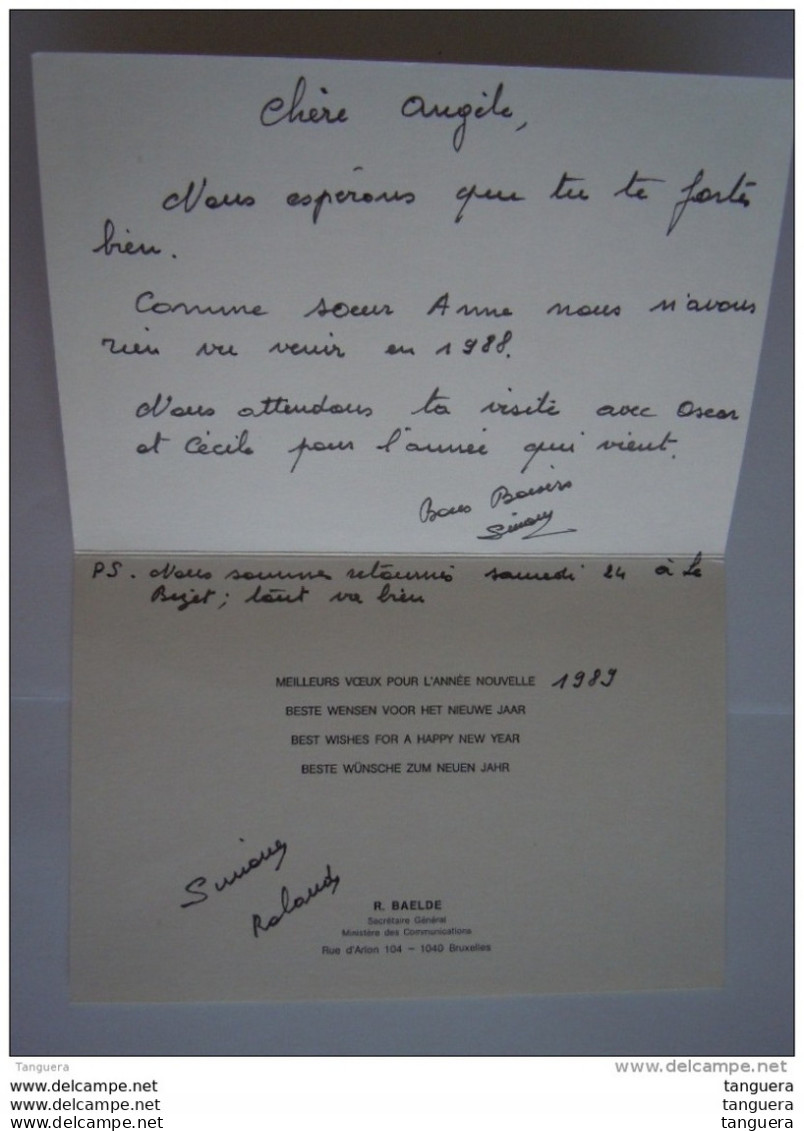 Chère Angèle,
Nous espérons que tu te portes
bien.
Comme soeur Anne nous n'avons
rien vu venir en 1988.
Nous attendons ta visite avec Oscar
et Cécile pour l'année qui vient.
Bons Baisers
Simone
PS. Nous sommes retournés samedi 24 à Le
Bizet; tout va bien
MEILLEURS VŒUX POUR L'ANNÉE NOUVELLE 1989
BESTE WENSEN VOOR HET NIEUWE JAAR
BEST WISHES FOR A HAPPY NEW YEAR
BESTE WÜNSCHE ZUM NEUEN JAHR
Simone
Roland
R. BAELDE
Secrétaire Général
Ministère des Communications
Rue d'Arlon 104 – 1040 Bruxelles
Tanguera
www.delcampe.net
tanguera
www.delcampe.net
tanguera
www.delcampe.net
tanguera
www.delcampe.net